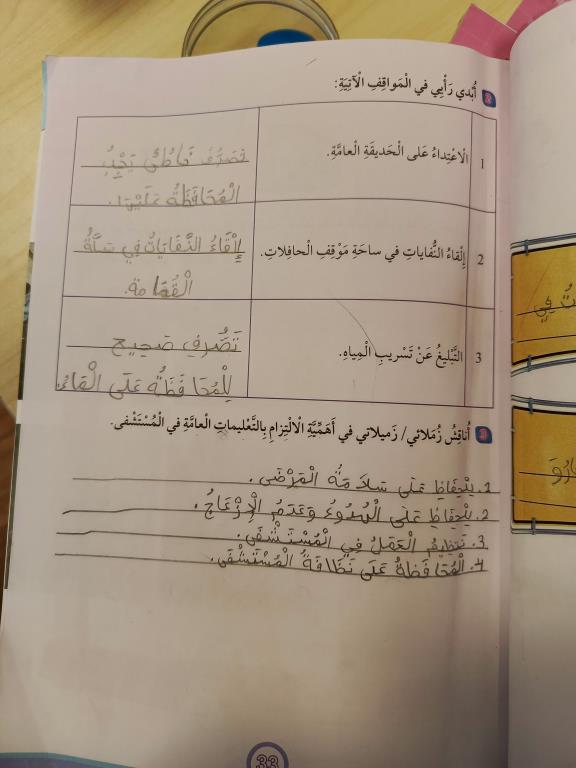 2 أُبْدي رَأْيي في الْمَواقِفِ الْآتِيَةِ:
1 الْاعْتِداءُ عَلى الْحَديقَةِ الْعامَّةِ.
تَصَرُّفٌ خَاطِئٌ يَجِبُ
الْمُحَافَظَةُ عَلَيْهَا.
2 إِلْقاءُ النُّفاياتِ في ساحَةِ مَوْقِفِ الْحافِلاتِ.
إِلْقَاءُ النُّفَايَاتُ فِي سَلَّةُ
الْقُمَامة.
3 التَّبْليغُ عَنْ تَسْريبِ الْمِياهِ.
تَصَّرُفِ صَحِيح
لِلْمُحَافَظَةُ عَلَى الْمَاءُ.
3 أُناقِشُ زُمَلائي/ زَميلاتي في أَهَمِّيَّةِ الْالْتِزامِ بِالتَّعْليماتِ الْعامَّةِ في الْمُسْتَشْفى.
1. لِلْحِفَاظِ عَلَى سَلَامَةُ الْمَرْضَى.
2. لِلْحِفَاظِ عَلَى الْهُدُوءُ وَعَدَمُ الْإِزْعَاجُ.
3. تَنْظِيمُ الْعَمَلُ فِي الْمُسْتَشْفَى.
4. الْمُحَافَظَةُ عَلَى نَظَافَةُ الْمُسْتَشْفَى.
33